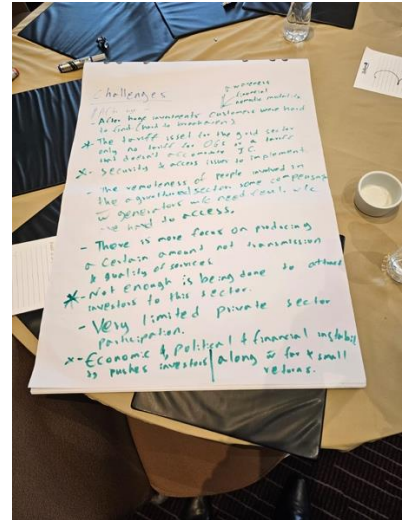 Challenges
Awareness
financial
- After huge investments customers were hard
to find (hard to break even)
* - The tariff isset for the grid sector
only no tariff for OGS or a tariff
that doesn't accomodate
x - Security & access issues to implement
- The remoteness of people involved in
the agricultural sector some
generators need fuel
hard to access.
- There is more focus on producing
a certain amount not transmission
& quality of services
* - Not enough is being done to attract
investors to this sector.
- Very limited private sector
participation.
x - Economic & Political & financial
pushes investors along so far & small
returns.